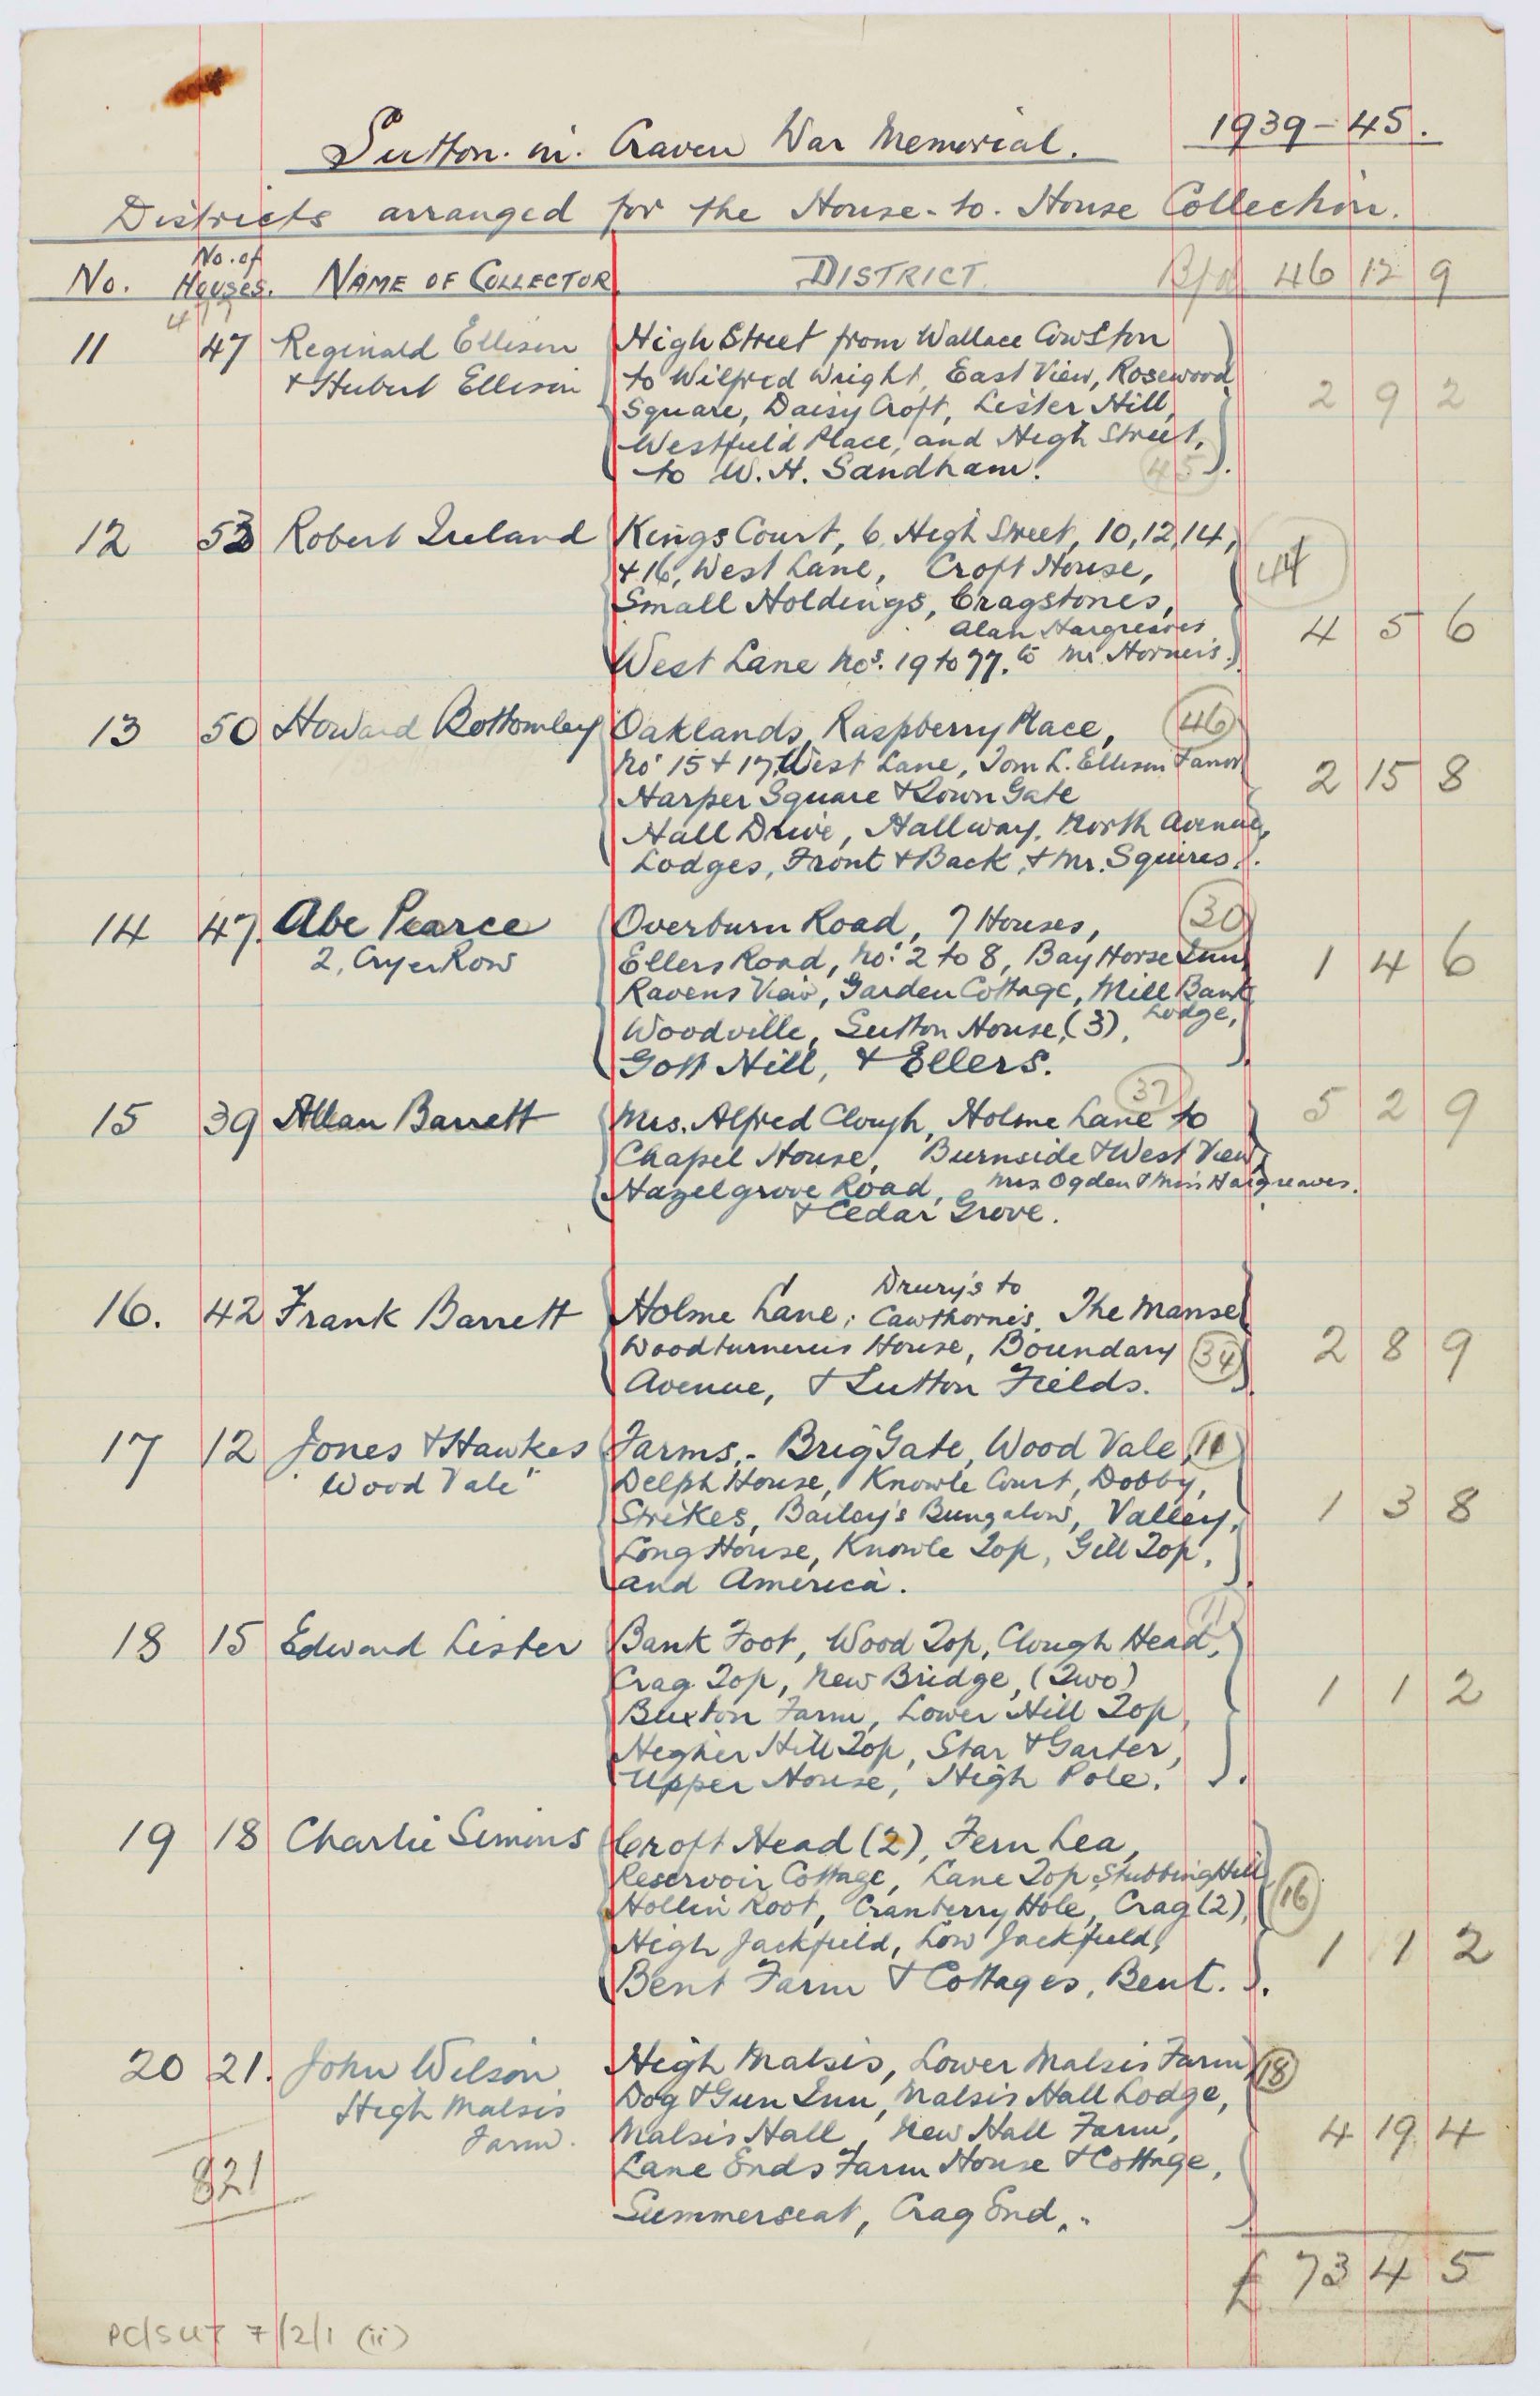 Sutton. in. Craven War Memorial. 1939-45.
Districts arranged for the House-to-House Collection.
No. No. of Houses. NAME OF COLLECTOR DISTRICT. B/fd 46 12 9
477
11 47 Reginald Ellison High Street from Wallace Cowston
& Hubert Ellison to Wilfred Wright, East View, Rosewood
Square, Daisy Croft, Lister Hill, 2 9 2
Westfield Place, and High Street,
to W. H. Sandham. (45)
12 53 Robert Ireland Kings Court, 6, High Street, 10, 12, 14,
& 16, West Lane, Croft House, 44
Small Holdings, Cragstones,
Alan Hargreaves 4 5 6
West Lane Nos. 19 to 77. to Mr. Horner's.
13 50 Howard Bottomley Oaklands, Raspberry Place, (46)
No. 15 & 17, West Lane, Tom L. Ellison Farm 2 15 8
Harper Square & Town Gate
Hall Drive, Hallway, North Avenue,
Lodges, Front & Back, & Mr. Squires.
14 47. Abe Pearce Overburn Road, 7 Houses, (30)
2, Cryer Row Ellers Road, No. 2 to 8, Bay Horse Inn 1 4 6
Ravens View, Garden Cottage, Mill Bank
Woodville, Sutton House, (3), Lodge,
Gott Hill, & Ellers.
(37)
15 39 Allan Barrett Mrs. Alfred Clough, Holme Lane to 5 2 9
Chapel House, Burnside & West View,
Hazelgrove Road, Mrs Ogden & Miss Hargreaves.
& Cedar Grove.
Drury's to
16. 42 Frank Barrett Holme Lane, Cawthorne's, The Manse
Woodturners House, Boundary (34) 2 8 9
Avenue, & Sutton Fields.
17 12 Jones & Hawkes Farms,- Brig Gate, Wood Vale, (11)
"Wood Vale" Delph House, Knowle Court, Dobby,
Strikes, Bailey's Bungalow, Valley, 1 3 8
Long House, Knowle Top, Gill Top,
and America.
(11)
18 15 Edward Lister Bank Foot, Wood Top, Clough Head,
Crag Top, New Bridge, (Two) 1 1 2
Buxton Farm, Lower Hill Top,
Higher Hill Top, Star & Garter,
Upper House, High Pole.
19 18 Charlie Simons Croft Head (2), Fern Lea,
Reservoir Cottage, Lane Top, Stubbing Hill
Hollin Root, Cranberry Hole, Crag (2), (16)
High Jackfield, Low Jackfield, 1 1 2
Bent Farm & Cottages, Bent.
20 21. John Wilson High Malsis, Lower Malsis Farm (18)
High Malsis Dog & Gun Inn, Malsis Hall Lodge,
Farm. Malsis Hall, New Hall Farm, 4 19 4
821 Lane Ends Farm House & Cottage,
Summerseat, Crag End,.
£ 73 4 5
PC/SUT 7/2/1 (ii)